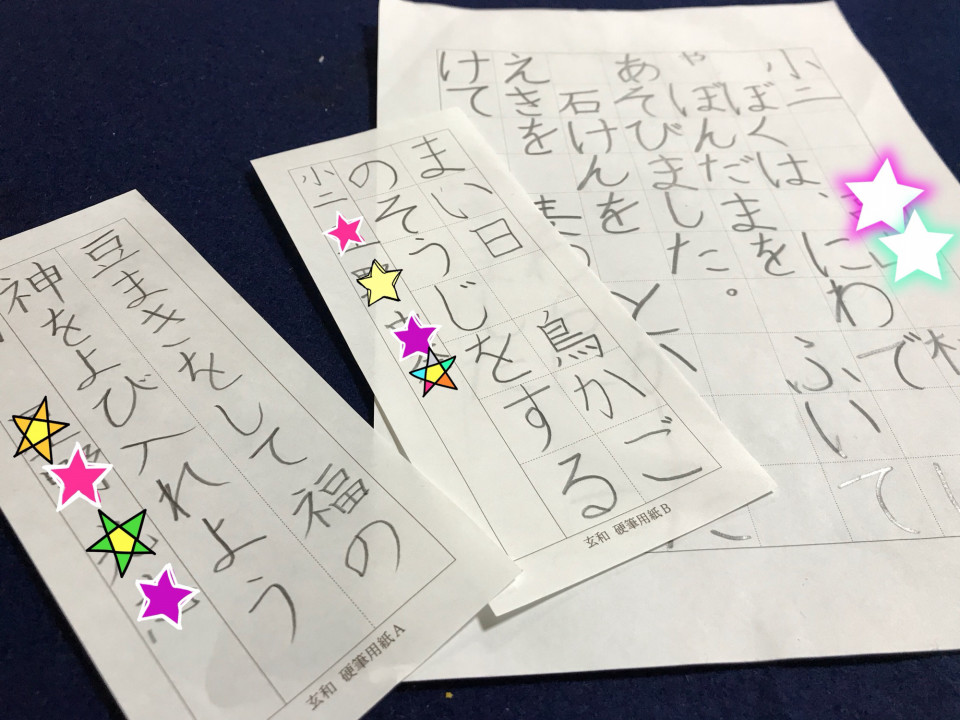 小二
ぼくは、にわで
ゃぼんだまをふいて
あそびました。
石けんを
えきを
けて
まい日鳥かご
のそうじをする
小二
玄和 硬筆用紙B
豆まきをして福の
神をよび入れよう
玄和 硬筆用紙A